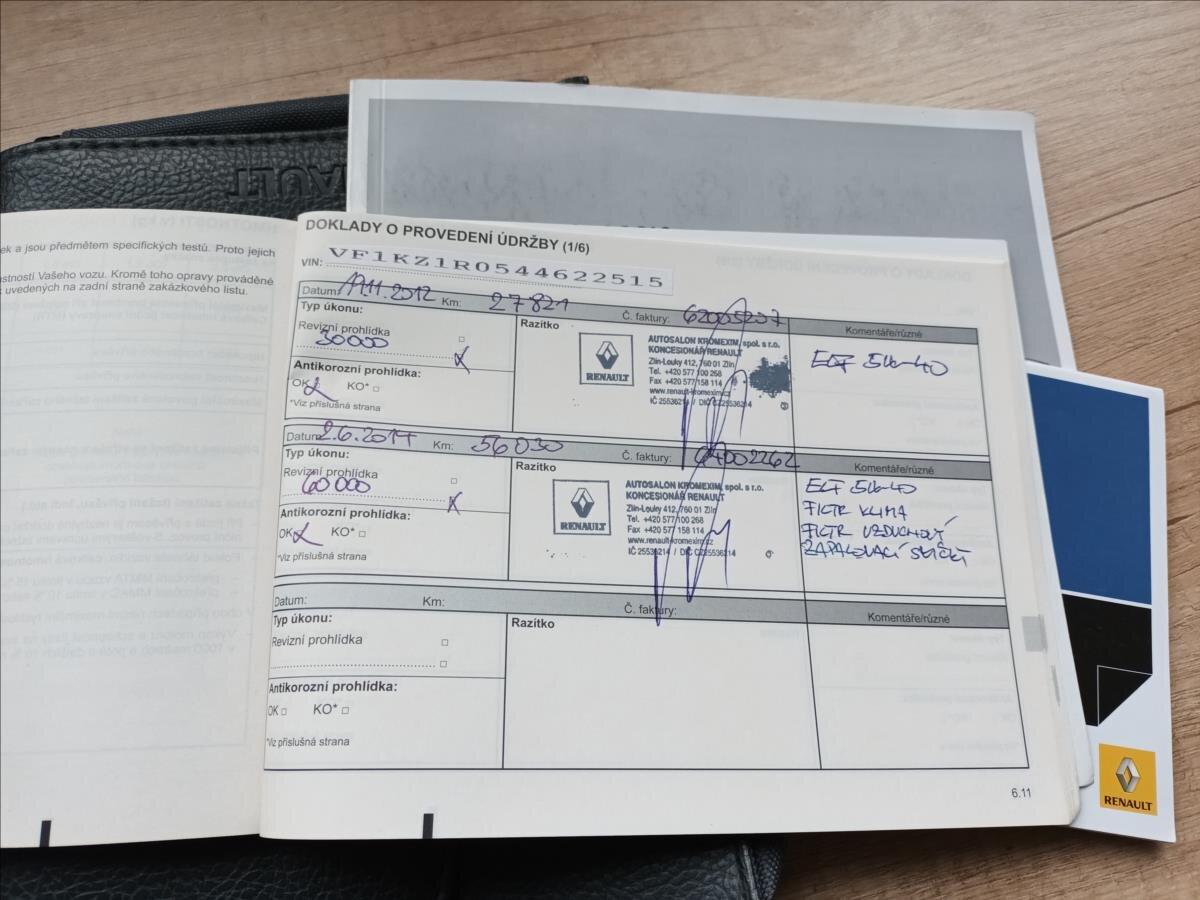 RENAULT
ek a jsou předmětem specifických testů. Proto jejich
astností Vašeho vozu. Kromě toho opravy prováděné
uvedených na zadní straně zakázkového listu.
DOKLADY O PROVEDENÍ ÚDRŽBY (1/6)
VIN: VF1KZ1R0544622515
Datum: 19.11.2012 Km: 27821 Č. faktury: 62005207 Komentáře/různé
Typ úkonu: Razítko
Revizní prohlídka
30000
Antikorozní prohlídka:
OK KO*
*Viz příslušná strana
RENAULT
AUTOSALON KROMEXIM, spol. s r.o.
KONCESIONÁŘ RENAULT
Zlín-Louky 412, 760 01 Zlín
Tel. +420 577 100 268
Fax +420 577 158 114
www.renault-kromexim.cz
IČ 25536214 / DIČ CZ25536214
ELF 5W-40
Datum: 2.6.2014 Km: 56030 Č. faktury: 64002262 Komentáře/různé
Typ úkonu: Razítko
Revizní prohlídka
60000
Antikorozní prohlídka:
OK KO*
*Viz příslušná strana
RENAULT
AUTOSALON KROMEXIM, spol. s r.o.
KONCESIONÁŘ RENAULT
Zlín-Louky 412, 760 01 Zlín
Tel. +420 577 100 268
Fax +420 577 158 114
www.renault-kromexim.cz
IČ 25536214 / DIČ CZ25536214
ELF 5W-40
FILTR KLIMA
FILTR VZDUCHOVÝ
ZAPALOVACÍ SVÍČKY
Datum: Km: Č. faktury: Komentáře/různé
Typ úkonu: Razítko
Revizní prohlídka
Antikorozní prohlídka:
OK KO*
*Viz příslušná strana
6.11
RENAULT